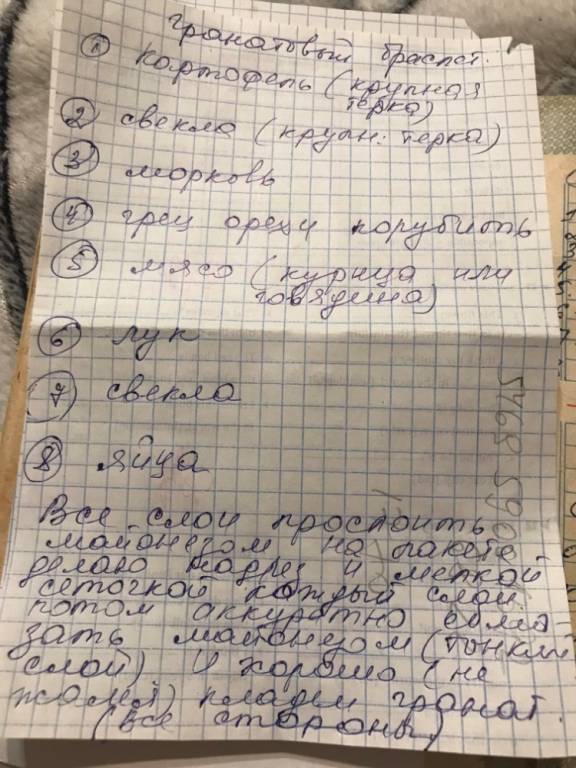 Гранатовый браслет.
① картофель (крупная
терка)
② свекла (крупн. терка)
③ морковь
④ грец орехи порубить
⑤ мясо (курица или
говядина)
⑥ лук
⑦ свекла
⑧ яйца
Все слои прослоить
майонезом на пакете
делаю надрез и мелкой
сеточкой каждый слой.
потом аккуратно обма-
зать майонезом (тонкий
слой) И хорошо (не
жалея) кладем гранат.
(все стороны)